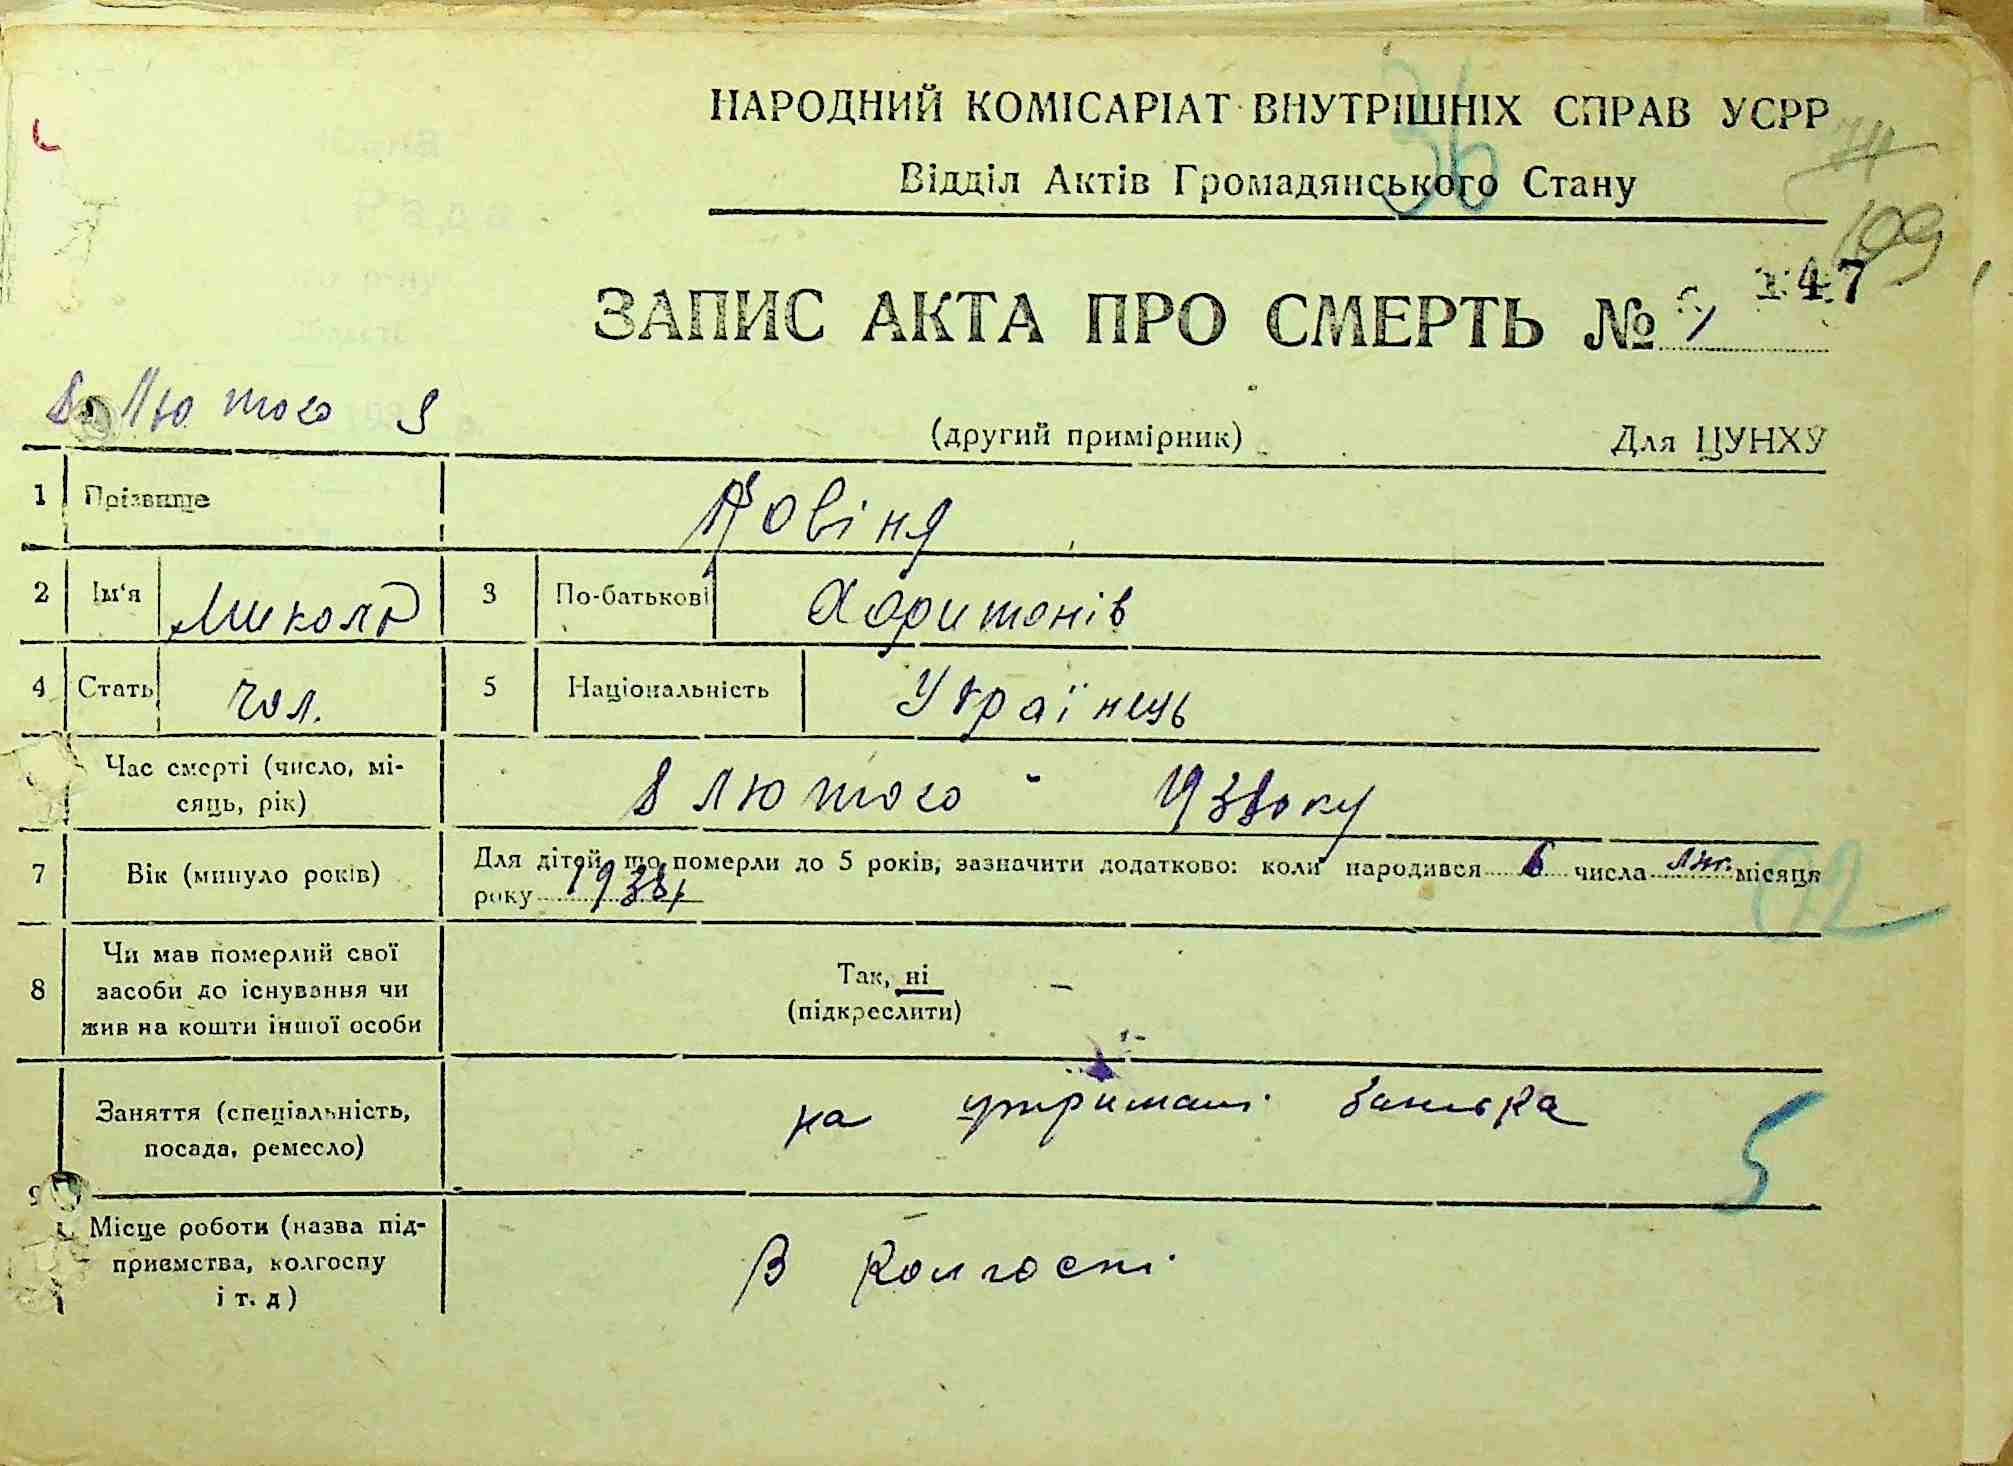 36
НАРОДНИЙ КОМІСАРІАТ ВНУТРІШНІХ СПРАВ УСРР
Відділ Актів Громадянського Стану
109
147
ЗАПИС АКТА ПРО СМЕРТЬ №
8 Лютого
(другий примірник) Для ЦУНХУ
1 Прізвище Довіня
2 Ім'я Микола 3 По-батькові Харитонів
4 Стать чол. 5 Національність Українець
Час смерті (число, мі-
сяць, рік) 8 лютого 1933року
7 Вік (минуло років) Для дітей, що померли до 5 років, зазначити додатково: коли народився 6 числа лют. місяця
року 1933р
92
8 Чи мав померлий свої
засоби до існування чи
жив на кошти іншої особи
Так, ні
(підкреслити)
Заняття (спеціальність,
посада, ремесло) на утримані батька
5
9
Місце роботи (назва під-
приємства, колгоспу
і т. д) В колгоспі